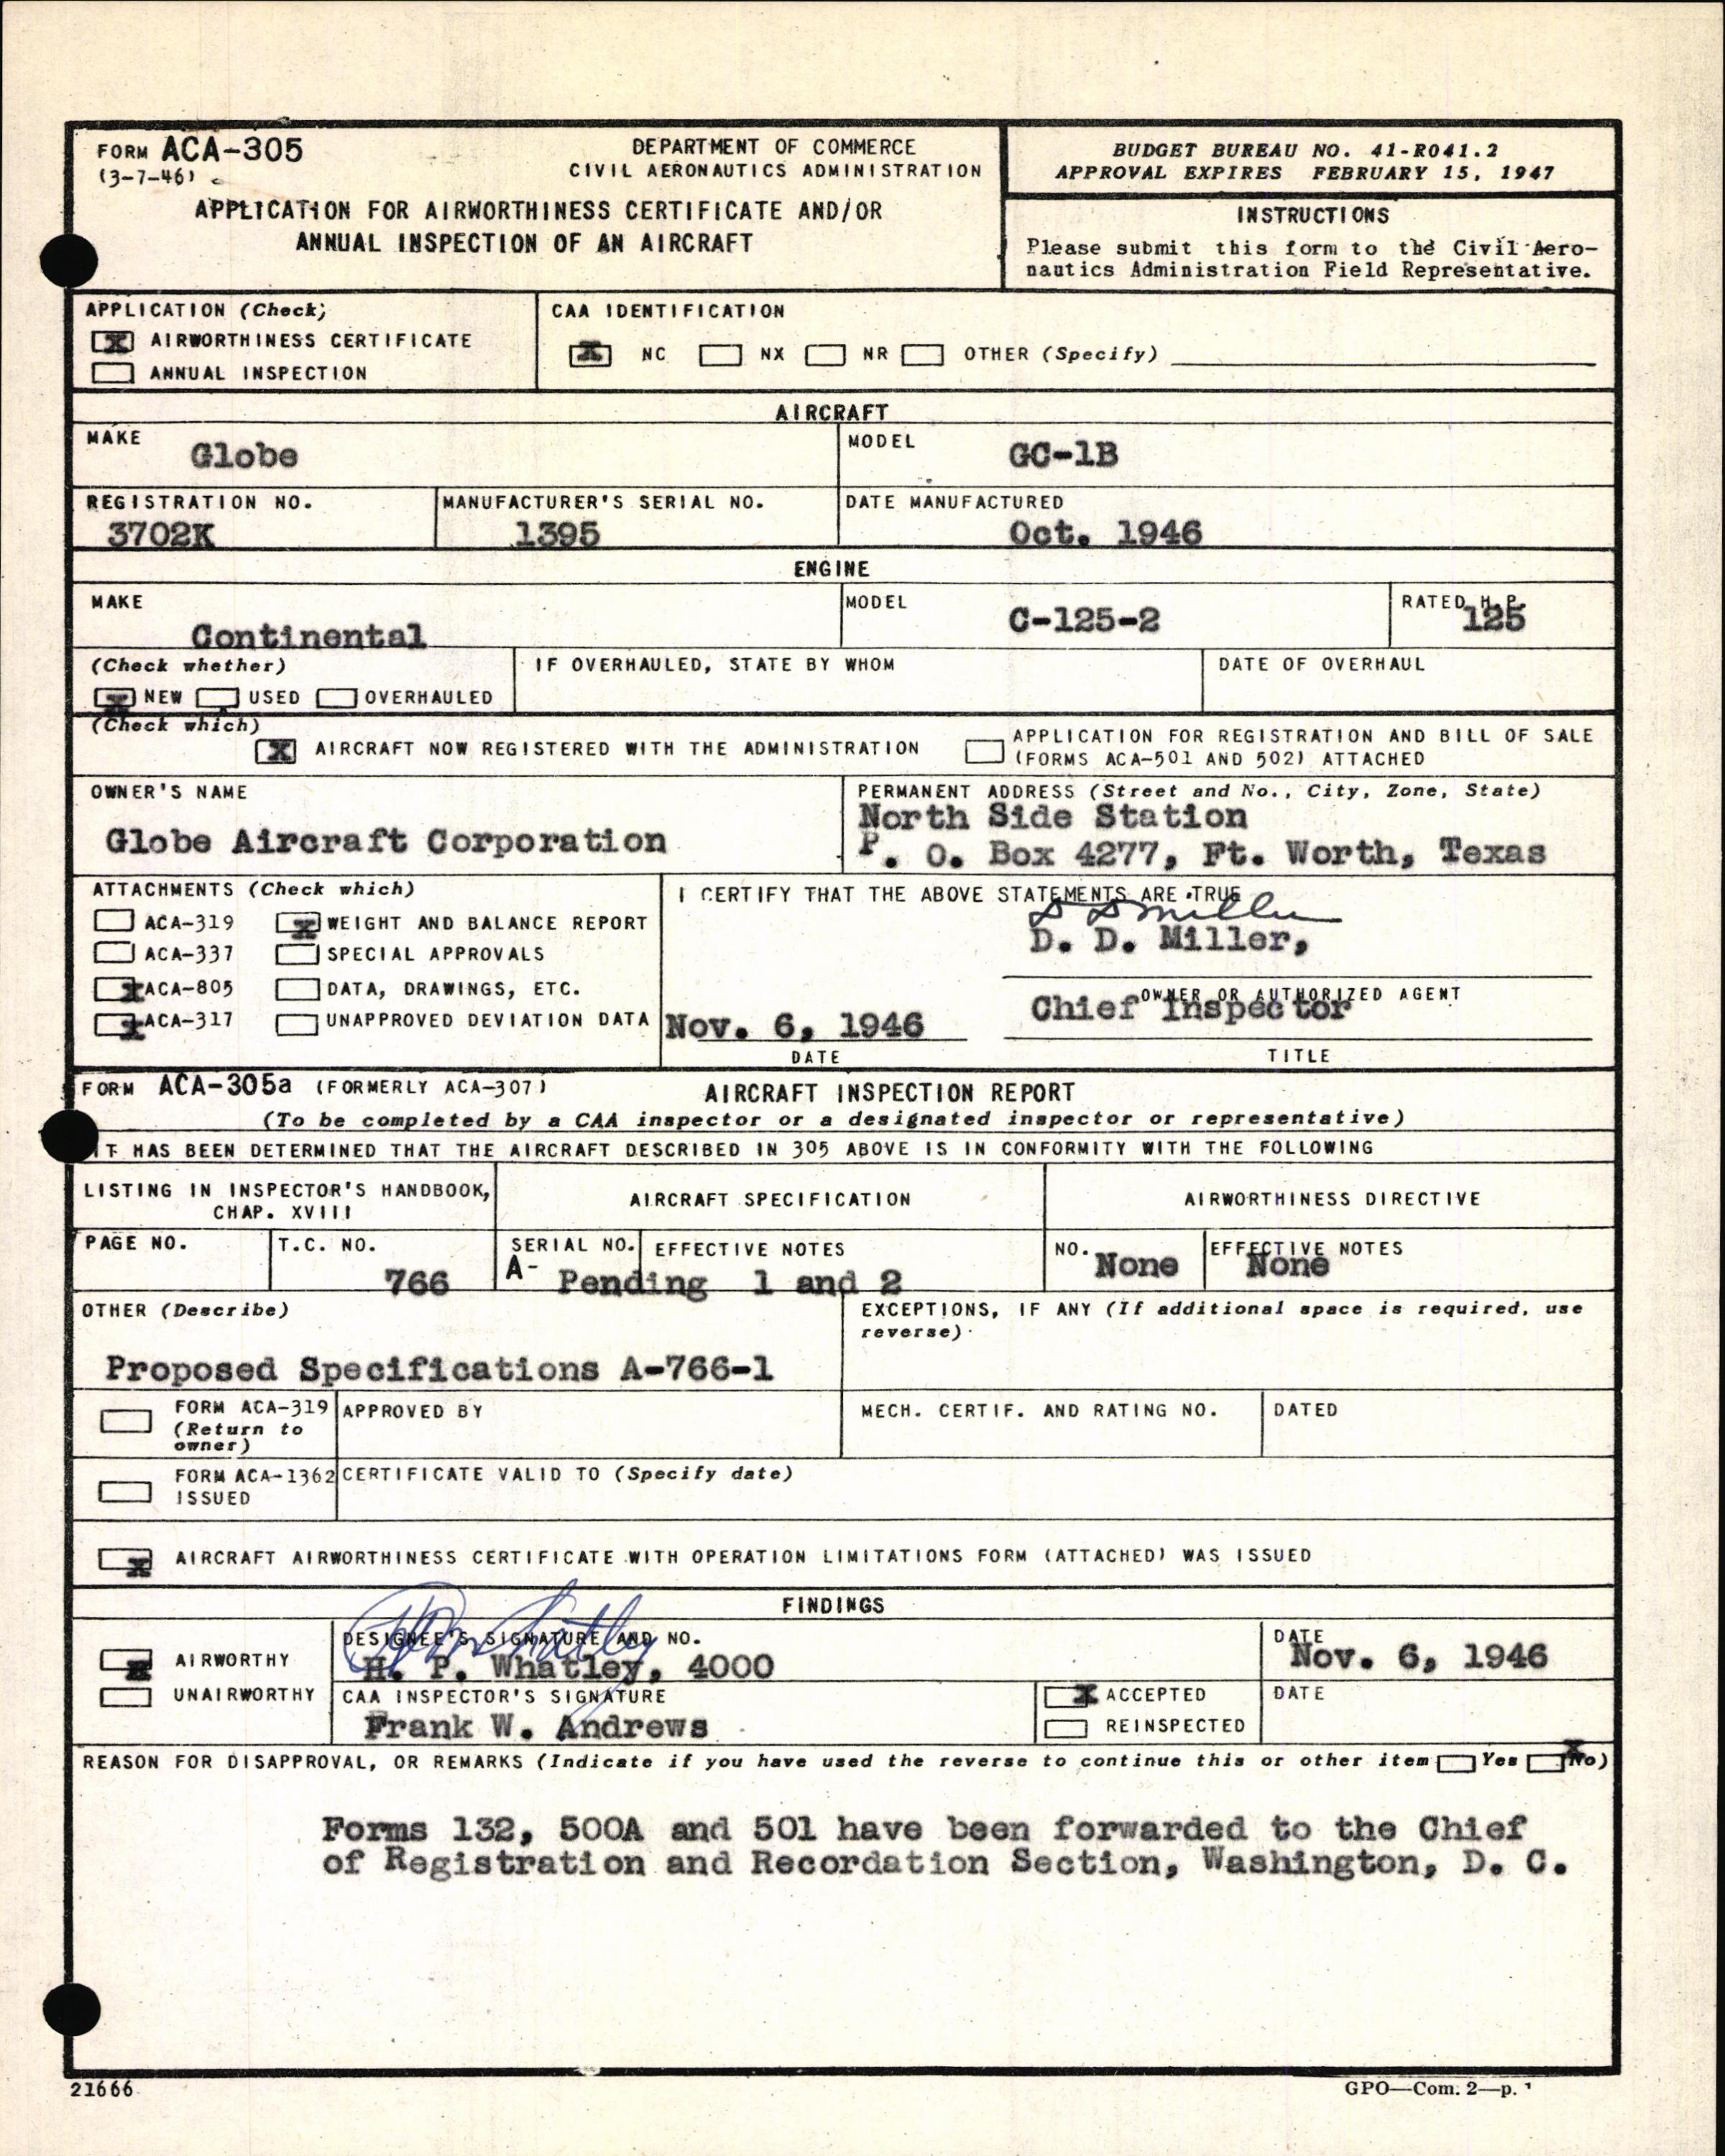 FORM ACA-305
(3-7-46)
DEPARTMENT OF COMMERCE
CIVIL AERONAUTICS ADMINISTRATION
APPLICATION FOR AIRWORTHINESS CERTIFICATE AND/OR
ANNUAL INSPECTION OF AN AIRCRAFT
BUDGET BUREAU NO. 41-R041.2
APPROVAL EXPIRES FEBRUARY 15, 1947
INSTRUCTIONS
Please submit this form to the Civil Aero-
nautics Administration Field Representative.
APPLICATION (Check)
X AIRWORTHINESS CERTIFICATE
ANNUAL INSPECTION
CAA IDENTIFICATION
X NC NX NR OTHER (Specify)
AIRCRAFT
MAKE
Globe
MODEL
GC-1B
REGISTRATION NO.
3702K
MANUFACTURER'S SERIAL NO.
1395
DATE MANUFACTURED
Oct. 1946
ENGINE
MAKE
Continental
MODEL
C-125-2
RATED H.P.
125
(Check whether)
X NEW USED OVERHAULED
IF OVERHAULED, STATE BY WHOM
DATE OF OVERHAUL
(Check which)
X AIRCRAFT NOW REGISTERED WITH THE ADMINISTRATION
APPLICATION FOR REGISTRATION AND BILL OF SALE
(FORMS ACA-501 AND 502) ATTACHED
OWNER'S NAME
Globe Aircraft Corporation
PERMANENT ADDRESS (Street and No., City, Zone, State)
North Side Station
P. O. Box 4277, Ft. Worth, Texas
ATTACHMENTS (Check which)
ACA-319 X WEIGHT AND BALANCE REPORT
ACA-337 SPECIAL APPROVALS
X ACA-805 DATA, DRAWINGS, ETC.
X ACA-317 UNAPPROVED DEVIATION DATA
I CERTIFY THAT THE ABOVE STATEMENTS ARE TRUE
D D Miller
D. D. Miller,
OWNER OR AUTHORIZED AGENT
Chief Inspector
Nov. 6, 1946
DATE
TITLE
FORM ACA-305a (FORMERLY ACA-307)
AIRCRAFT INSPECTION REPORT
(To be completed by a CAA inspector or a designated inspector or representative)
IT HAS BEEN DETERMINED THAT THE AIRCRAFT DESCRIBED IN 305 ABOVE IS IN CONFORMITY WITH THE FOLLOWING
LISTING IN INSPECTOR'S HANDBOOK,
CHAP. XVIII
AIRCRAFT SPECIFICATION
AIRWORTHINESS DIRECTIVE
PAGE NO.
T.C. NO.
766
SERIAL NO.
A- Pending
EFFECTIVE NOTES
1 and 2
NO.
None
EFFECTIVE NOTES
None
OTHER (Describe)
Proposed Specifications A-766-1
EXCEPTIONS, IF ANY (If additional space is required, use
reverse)
FORM ACA-319
(Return to
owner)
APPROVED BY
MECH. CERTIF. AND RATING NO.
DATED
FORM ACA-1362
ISSUED
CERTIFICATE VALID TO (Specify date)
X AIRCRAFT AIRWORTHINESS CERTIFICATE WITH OPERATION LIMITATIONS FORM (ATTACHED) WAS ISSUED
FINDINGS
X AIRWORTHY
UNAIRWORTHY
DESIGNEE'S SIGNATURE AND NO.
HP Whatley
H. P. Whatley, 4000
DATE
Nov. 6, 1946
CAA INSPECTOR'S SIGNATURE
Frank W. Andrews
X ACCEPTED
REINSPECTED
DATE
REASON FOR DISAPPROVAL, OR REMARKS (Indicate if you have used the reverse to continue this or other item Yes X No)
Forms 132, 500A and 501 have been forwarded to the Chief
of Registration and Recordation Section, Washington, D. C.
21666
GPO—Com. 2—p.